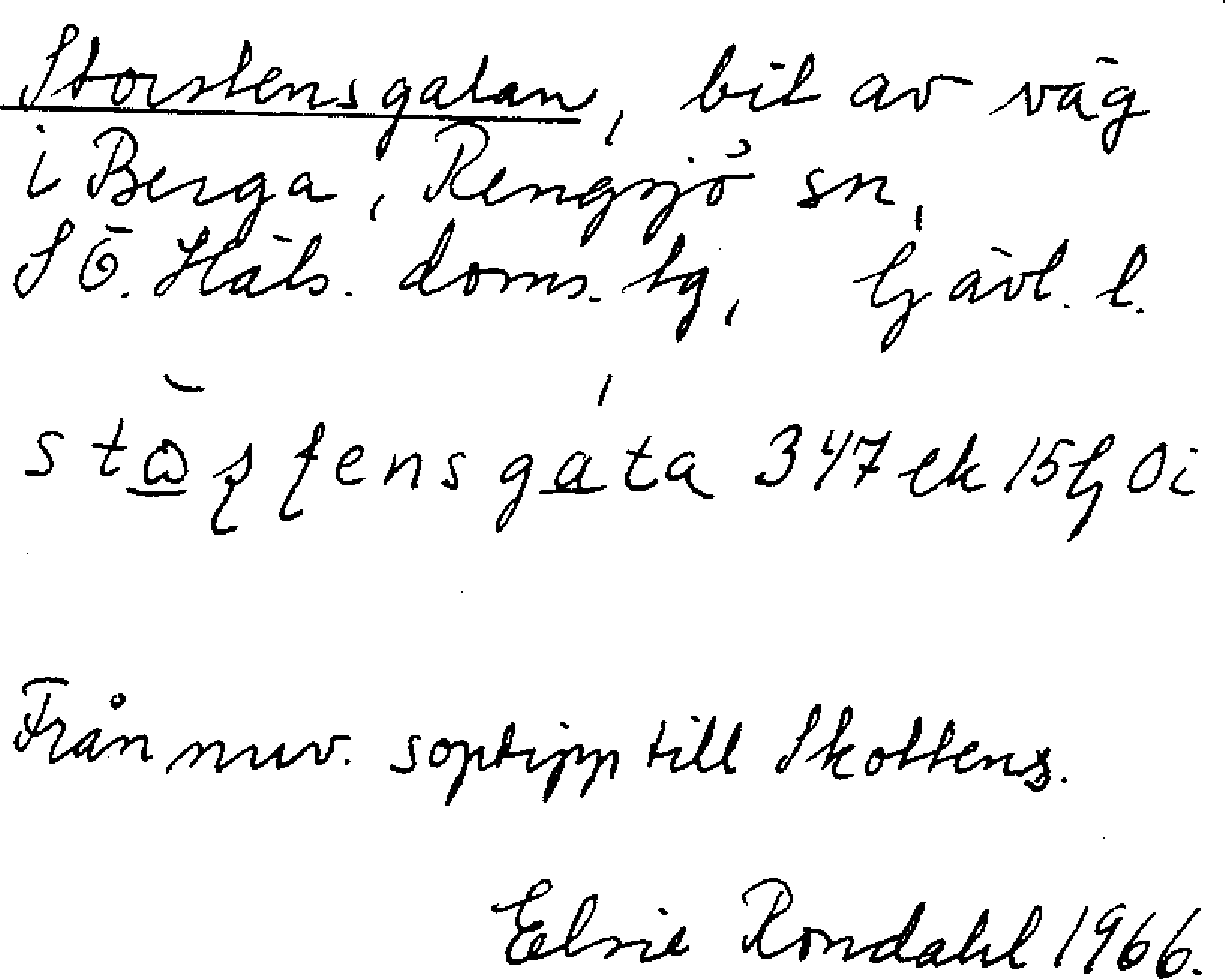 Storstensgatan, bit av väg
i Berga, Rengsjö sn,
SÖ. Häls. doms. tg, Gävl. l.
gata 347 ek 15G Oi
Från nuv. soptipp till Skottens.
Elsie Rondahl 1966.